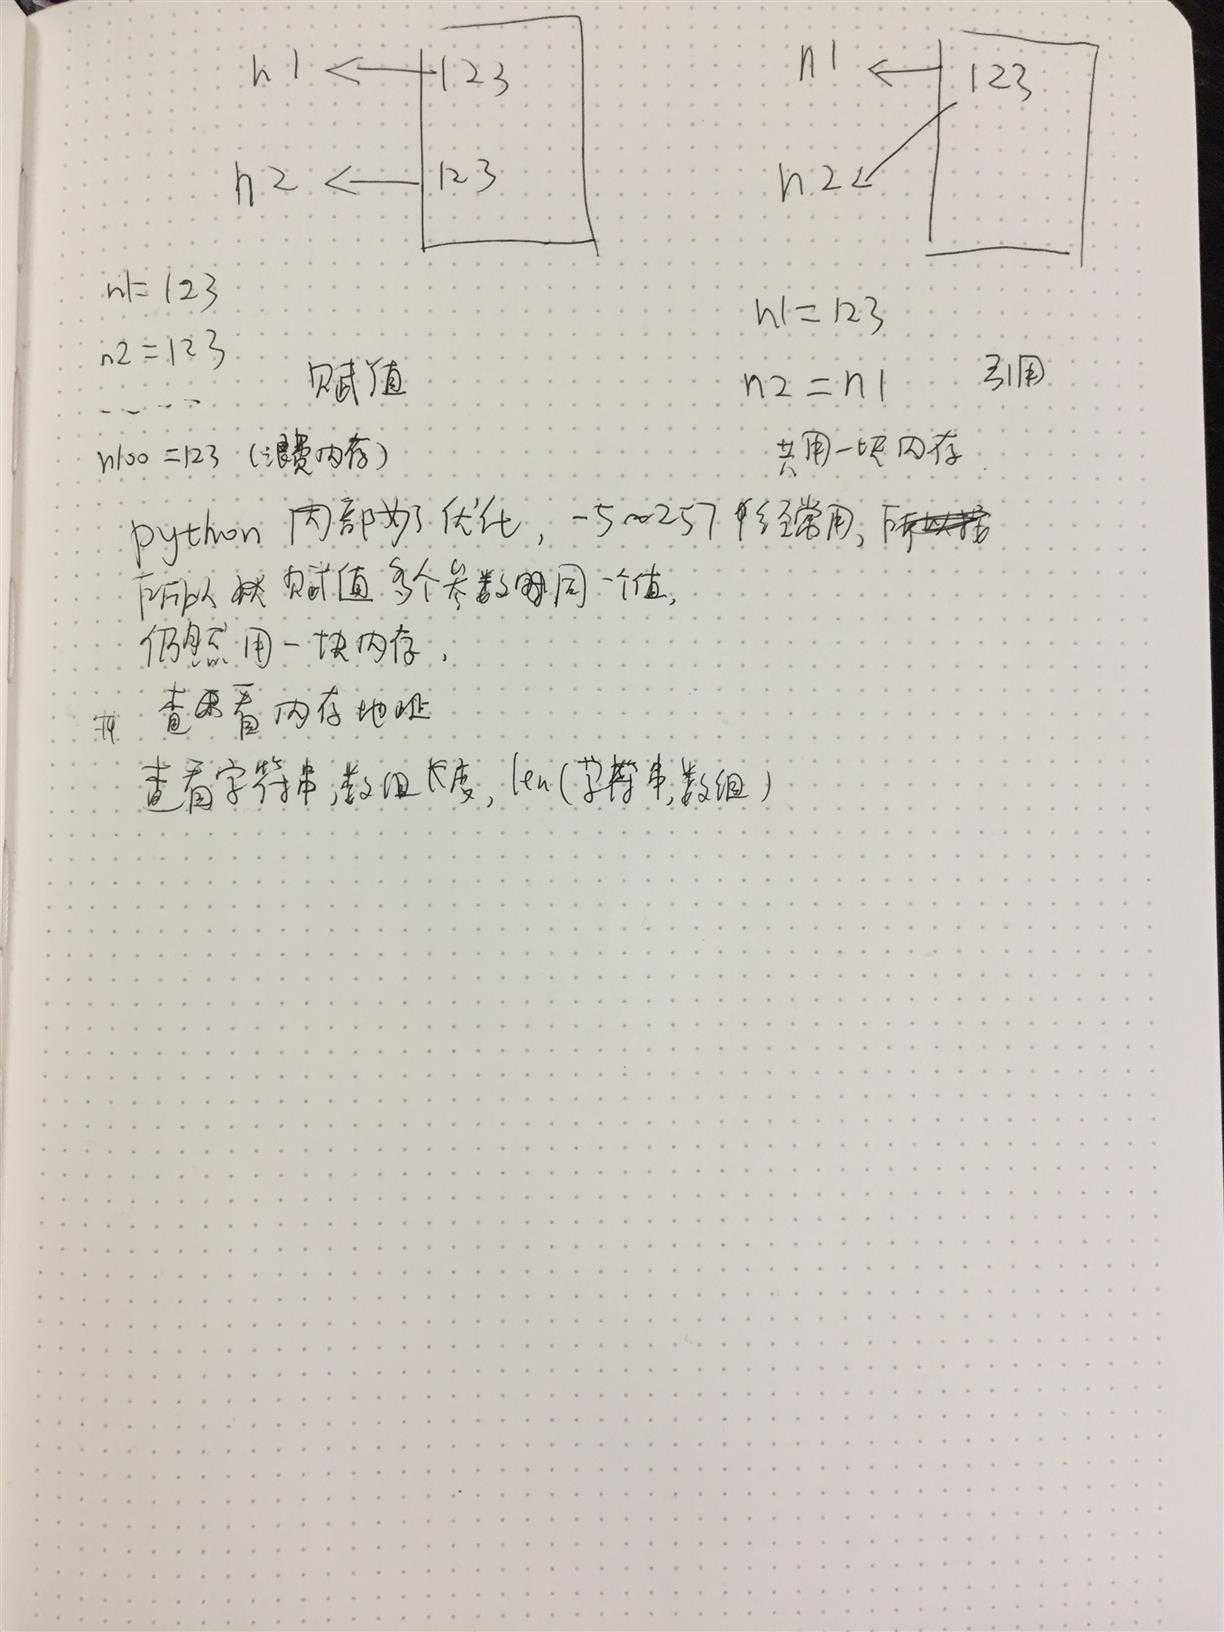 n1 123 n1 123
n2 123 n2
n1=123 n1=123
n2=123
赋值 n2=n1 引用
n100=123 (浪费内存) 共用一块内存
python 内部做了优化, -5~257 经常用,
所以 赋值多个参数 同一个值,
仍然用一块内存.
查看内存地址
查看字符串,数组长度, len(字符串,数组)